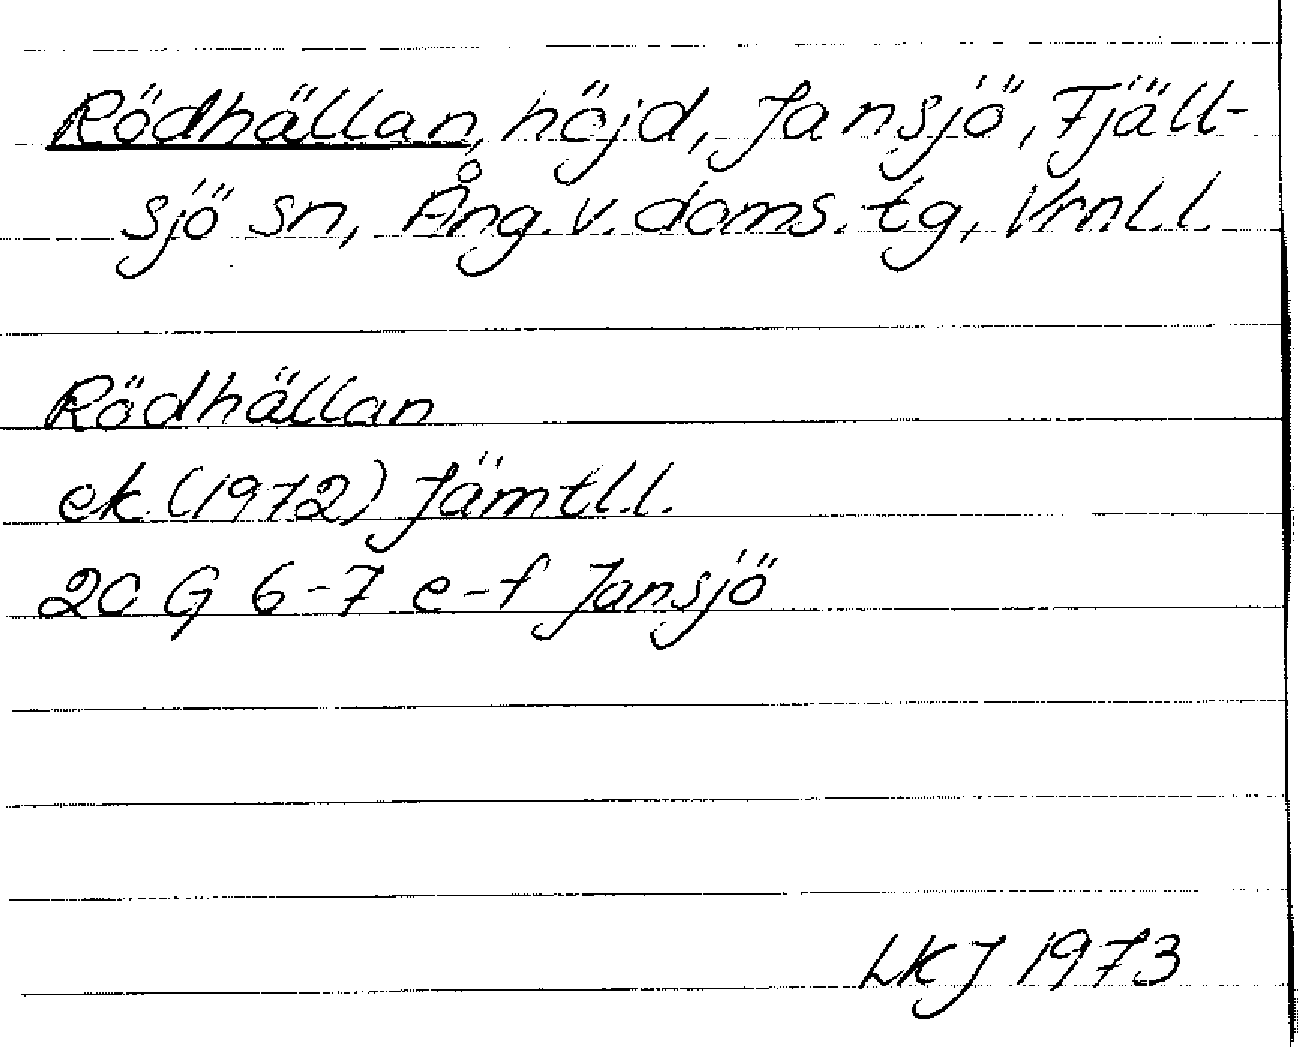 Rödhällan, höjd, Jansjö, Fjäll-
sjö sn, Ång. v. doms. tg, Vrnl. l.
Rödhällan
ek. (1972) Jämtl. l.
20 G 6-7 e-f Jansjö
LKJ 1973